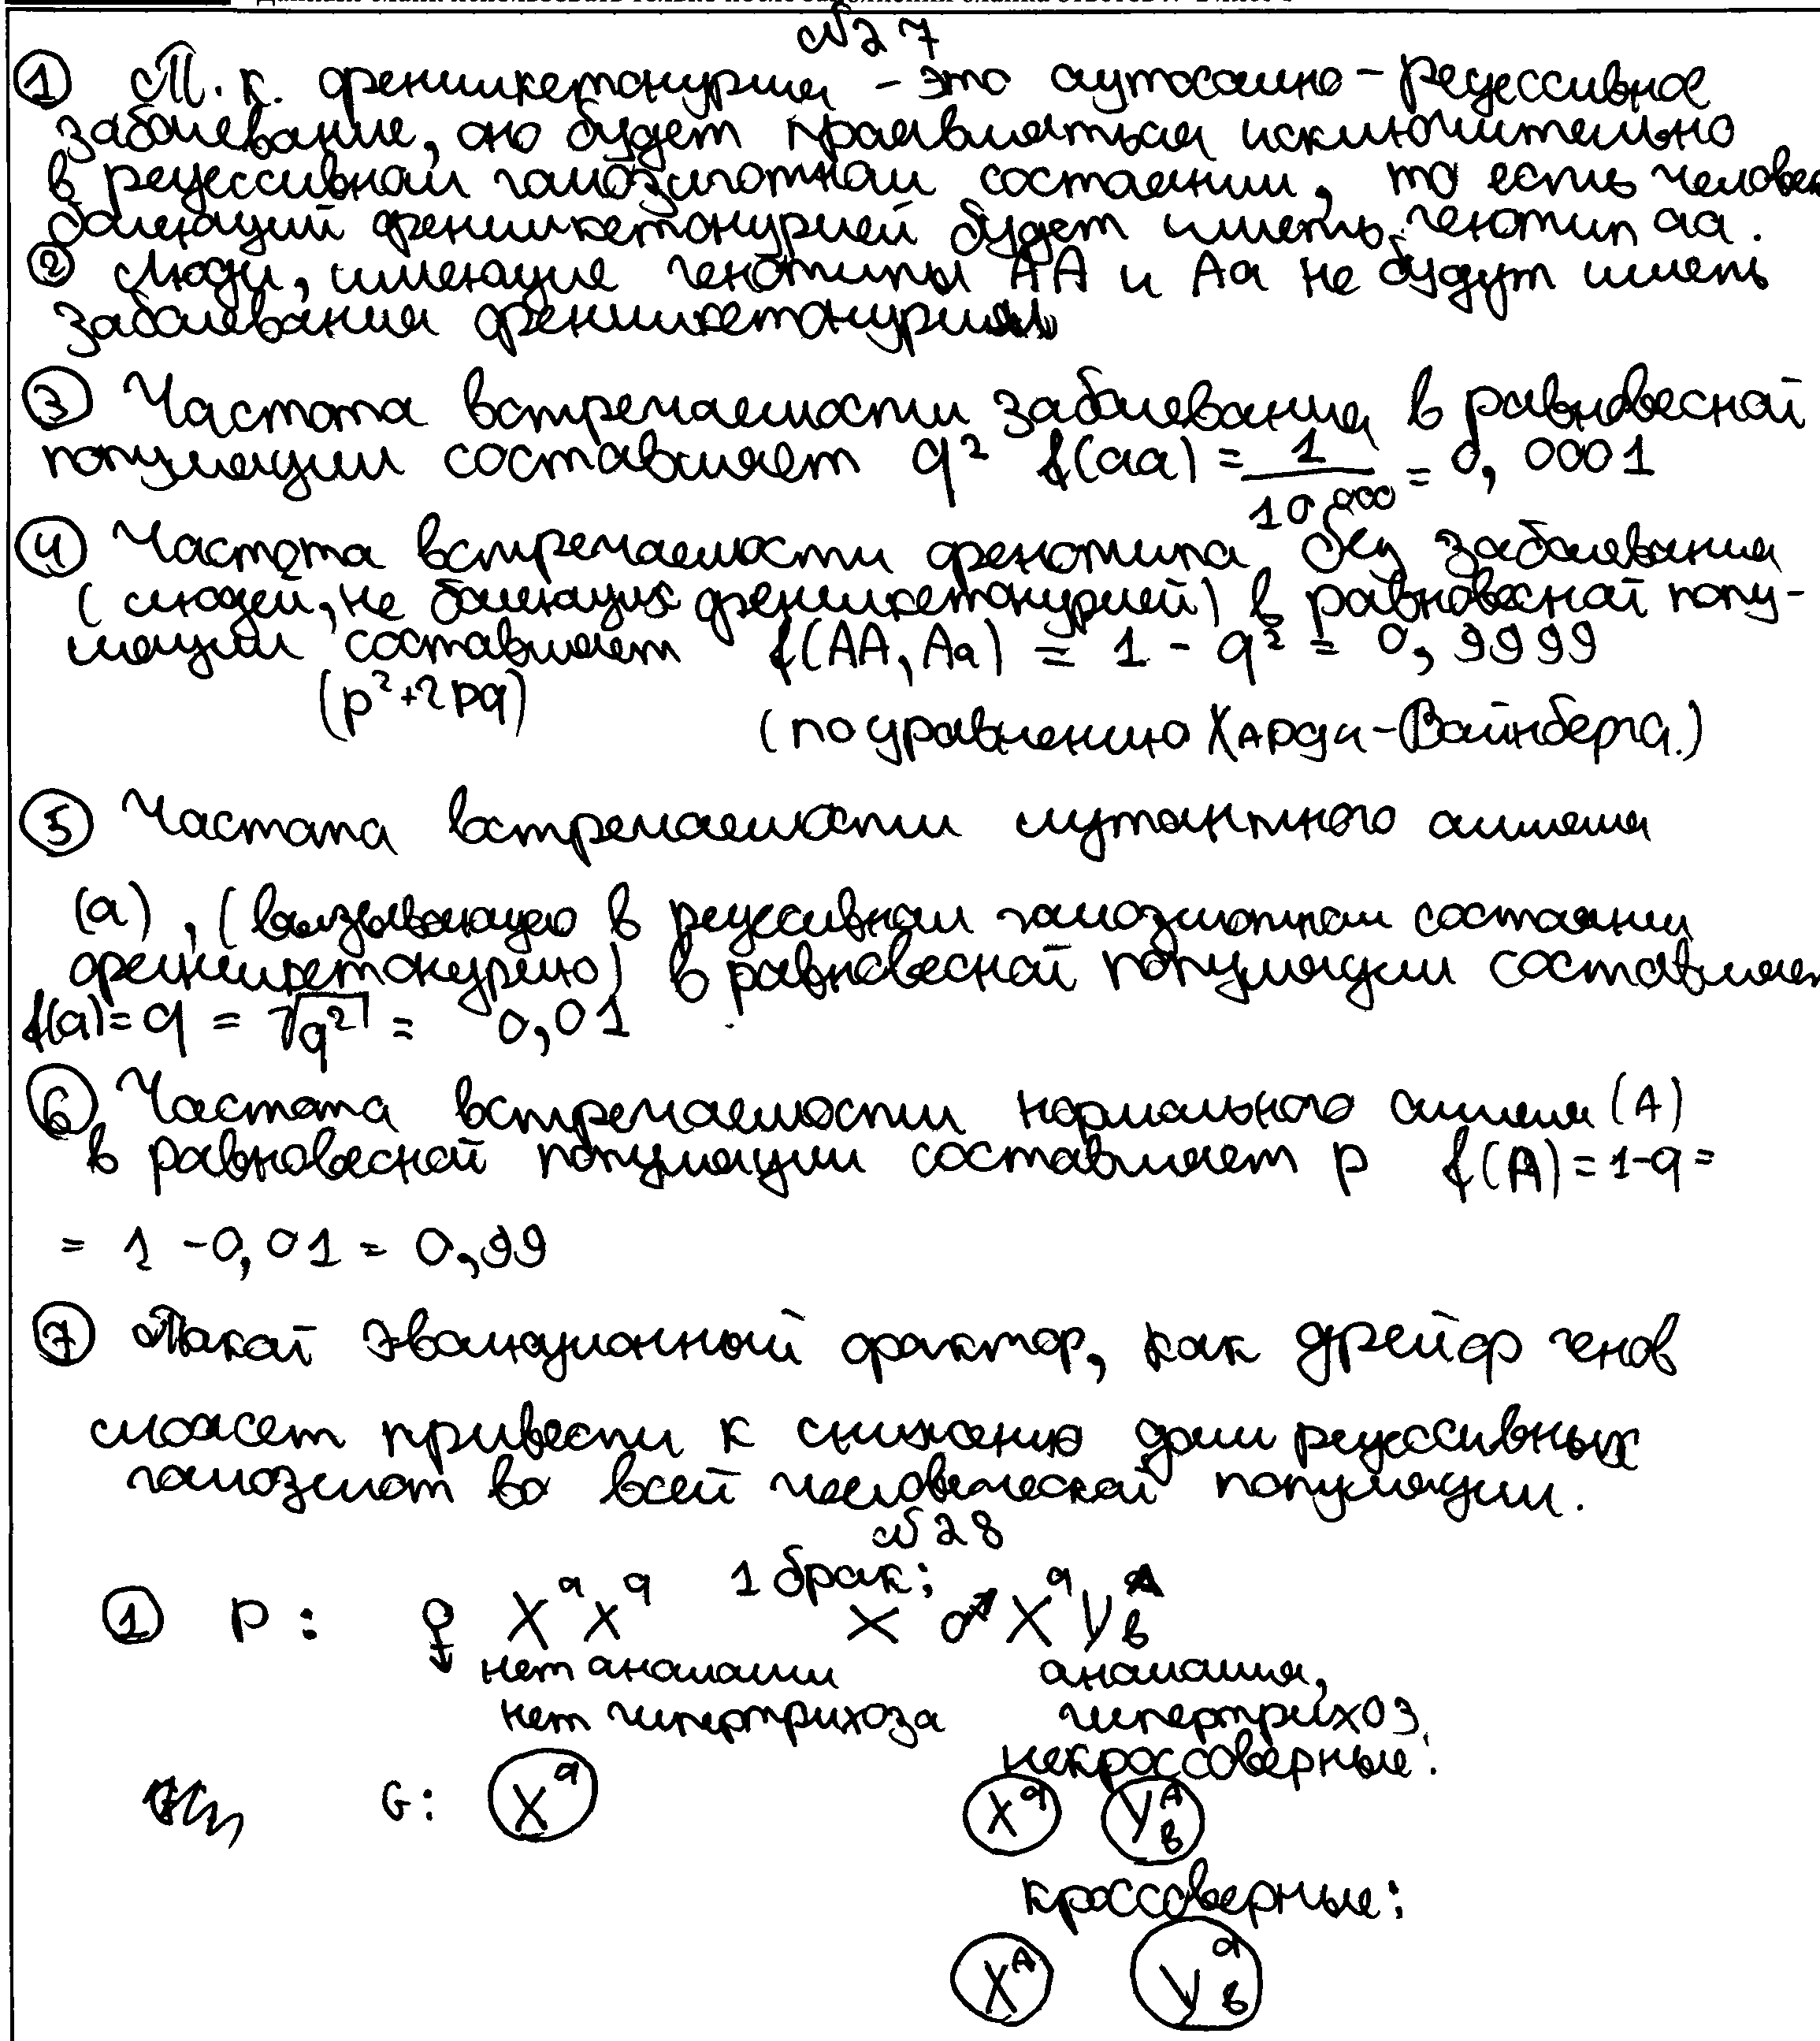 №27
① Т.к. фенилкетонурия - это аутосомно-рецессивное
заболевание, оно будет проявляться исключительно
в рецессивном гомозиготном состоянии, то есть человек
болеющий фенилкетонурией будет иметь генотип аа.
② Люди, имеющие генотипы АА и Аа не будут иметь
заболевания фенилкетонурия
③ Частота встречаемости заболевания в равновесной
популяции составляет q² f(aa) = 1/10 000 = 0,0001
④ Частота встречаемости фенотипа без заболевания
(людей, не болеющих фенилкетонурией) в равновесной попу-
ляции составляет f(AA, Aa) = 1 - q² = 0,9999
(p²+2pq) (по уравнению Харди-Вайнберга.)
⑤ Частота встречаемости мутантного аллеля
(а), (вызывающего в рецессивном гомозиготном состоянии
фенилкетонурию) в равновесной популяции составляет
f(a)= q = √q² = 0,01
⑥ Частота встречаемости нормального аллеля (А)
в равновесной популяции составляет p f(A) = 1-q =
= 1 - 0,01 = 0,99
⑦ Такой эволюционный фактор, как дрейф генов
может привести к снижению доли рецессивных
гомозигот во всей человеческой популяции.
№28
1 брак:
① P: ♀ XᵃXᵃ × ♂ XᵃYᴬв
нет аномалии аномалия,
нет гипертрихоза гипертрихоз
некроссоверные:
G: Xᵃ Xᵃ Yᴬв
кроссоверные:
Xᴬ Yᵃв